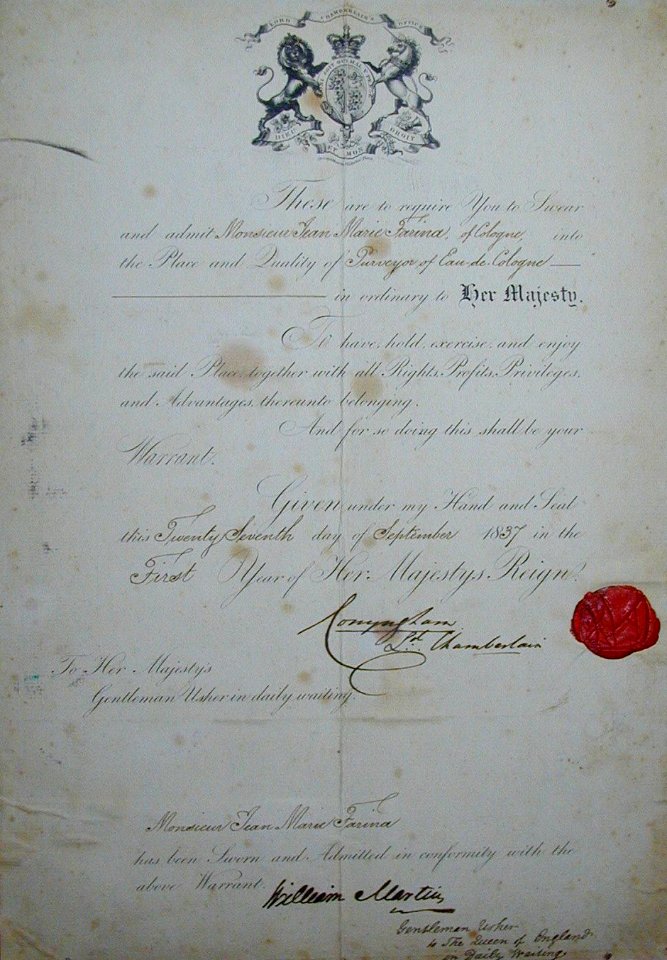 LORD CHAMBERLAIN'S OFFICE
DIEU ET MON DROIT
These are to require You to Swear
and admit Monsieur Jean Marie Farina, of Cologne, into
the Place and Quality of Purveyor of Eau-de-Cologne
in ordinary to Her Majesty.
To have, hold, exercise, and enjoy
the said Place, together with all Rights, Profits, Privileges,
and Advantages, thereunto belonging.
And for so doing this shall be your
Warrant.
Given under my Hand and Seal
this Twenty Seventh day of September 1837 in the
First Year of Her Majestys Reign.
Conyngham
Ld. Chamberlain
To Her Majestys
Gentleman Usher in daily waiting.
Monsieur Jean Marie Farina
has been Sworn and Admitted in conformity with the
above Warrant.
William Martins
Gentleman Usher
to The Queen of England
in Daily Waiting